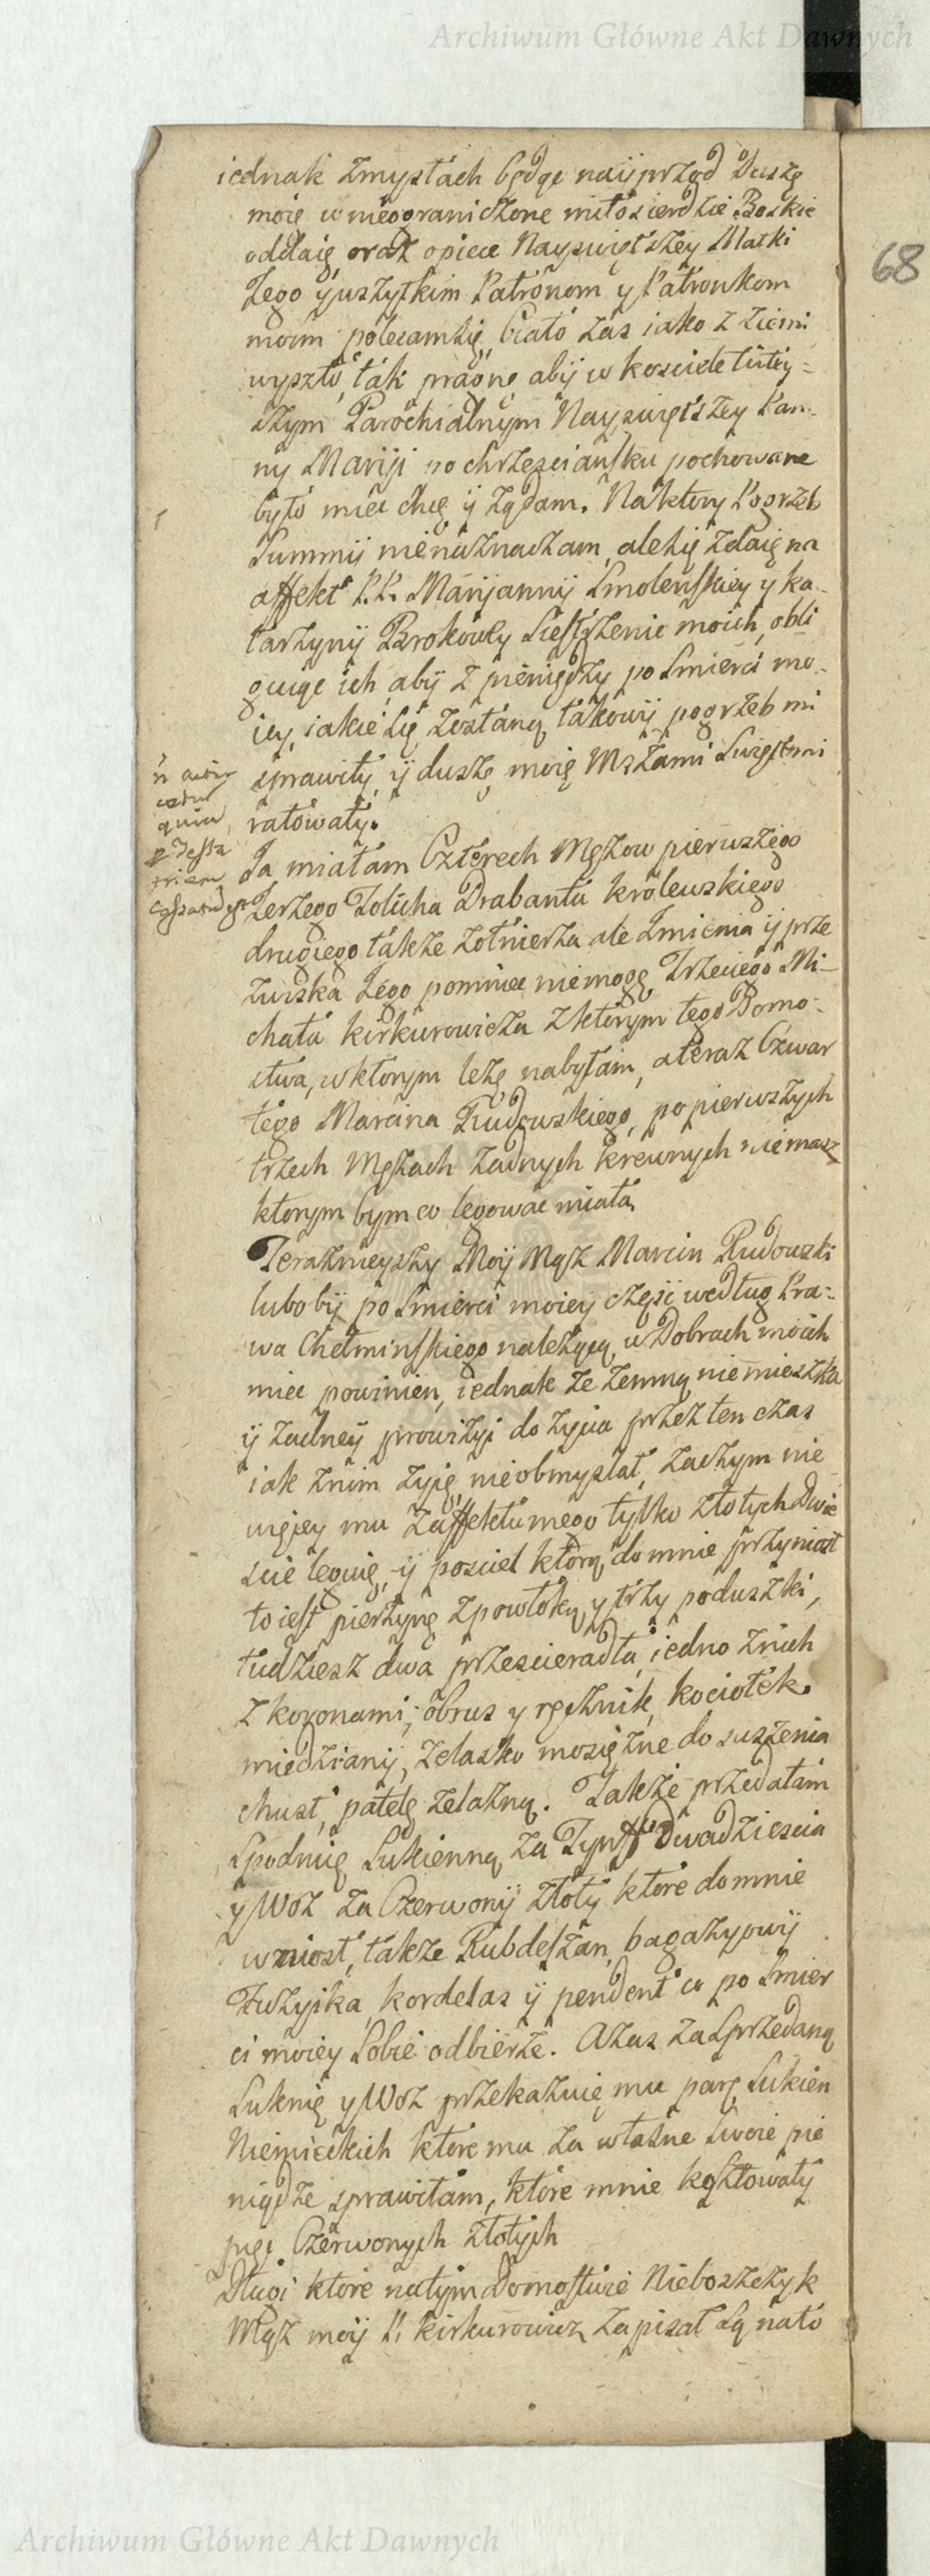 Archiwum Główne Akt Dawnych
68
iednak zmysłach będąc naijprzod Duszę
moię w nieograniczone miłosierdzie Boskie
oddaię oraz opiece Nayswiętszey Matki
Jego ywszytkim Patronom y Patronkom
moim polecam Się, Ciało zas iako z ziemi
wyszło, tak pragne abij w kosciele tutey-
szym Parochialnym Nayswiętszey Pan-
ny Mariji po chrzescianſku pochowane
było miec chcę ij żądam. Naktory Pogrzeb
Summij nienaznaczam, aleSię zdaię na
affekt P.P. Marijannij Smolenſkiey y Ka-
tarzynij Brokowły Siestrzenic moich, obli
guiąc ich, abij z pieniędzy po Smierci mo-
iey, iakie Się zostaną, takowij pogrzeb mi
sprawiły, ij duszę moię Mszami Swiętemi
ratowały.
Ja miałam Czterech Mężow pierwszego
Jerzego Zolicha Drabanta krolewskiego
drugiego także żołnierza ale Imienia ij prze
zwiska Jego pomniec niemogę, Trzeciego Mi-
chała Kirkurowicza z ktorym tego Domo-
stwa, w ktorym leżę nabyłam, a teraz Czwar
tego Marcina Rudowskiego, po pierwszych
trzech Mężach żadnych krewnych niemasz
ktorym bym co legowac miała,
Teraznieyszy Moij Mąsz Marcin Rudowski
lubobij po Smierci moiey częsc według Pra-
wa Chełminſkiego należącą, w Dobrach moich
miec powinien, iednak że zemną niemieszka
ij żadneij prowizyi do życia przez ten czas
iak znim żyię, nieobmyslał, zaczym nie
więcey mu zaffektu mego tylko złotych Dwie
scie leguię, ij posciel ktorą do mnie przyniosł
to iest pierzynę z powłoką, y trzy poduszki,
tudziesz dwa przescieradła, iedno znich
z koronami, obrus y ręcznik, kociołek
miedzianij, żelasko mosiężne do suszenia
chust, patelę żelazną. Także przedałam
Spodnię Sukienną za Tynff Dwadziescia
y Woz za Czerwonij złotij ktore do mnie
wniosł, także Rubdeszan, bagazyowij
Fuzyika, kordelas ij pendent co po Smier
ci moiey Sobie odbierze. A zas za Sprzedaną
Suknię y Woz przekazuię mu parę Sukien
Niemieckich ktore mu za własne Swoie pie
niądze sprawiłam, ktore mnie kosztowały
pięc Czerwonych złotijch
Długi ktore natym Domostwie Nieboszczyk
Mąsz moij P. Kirkurowicz zapisał Są na to
Archiwum Główne Akt Dawnych